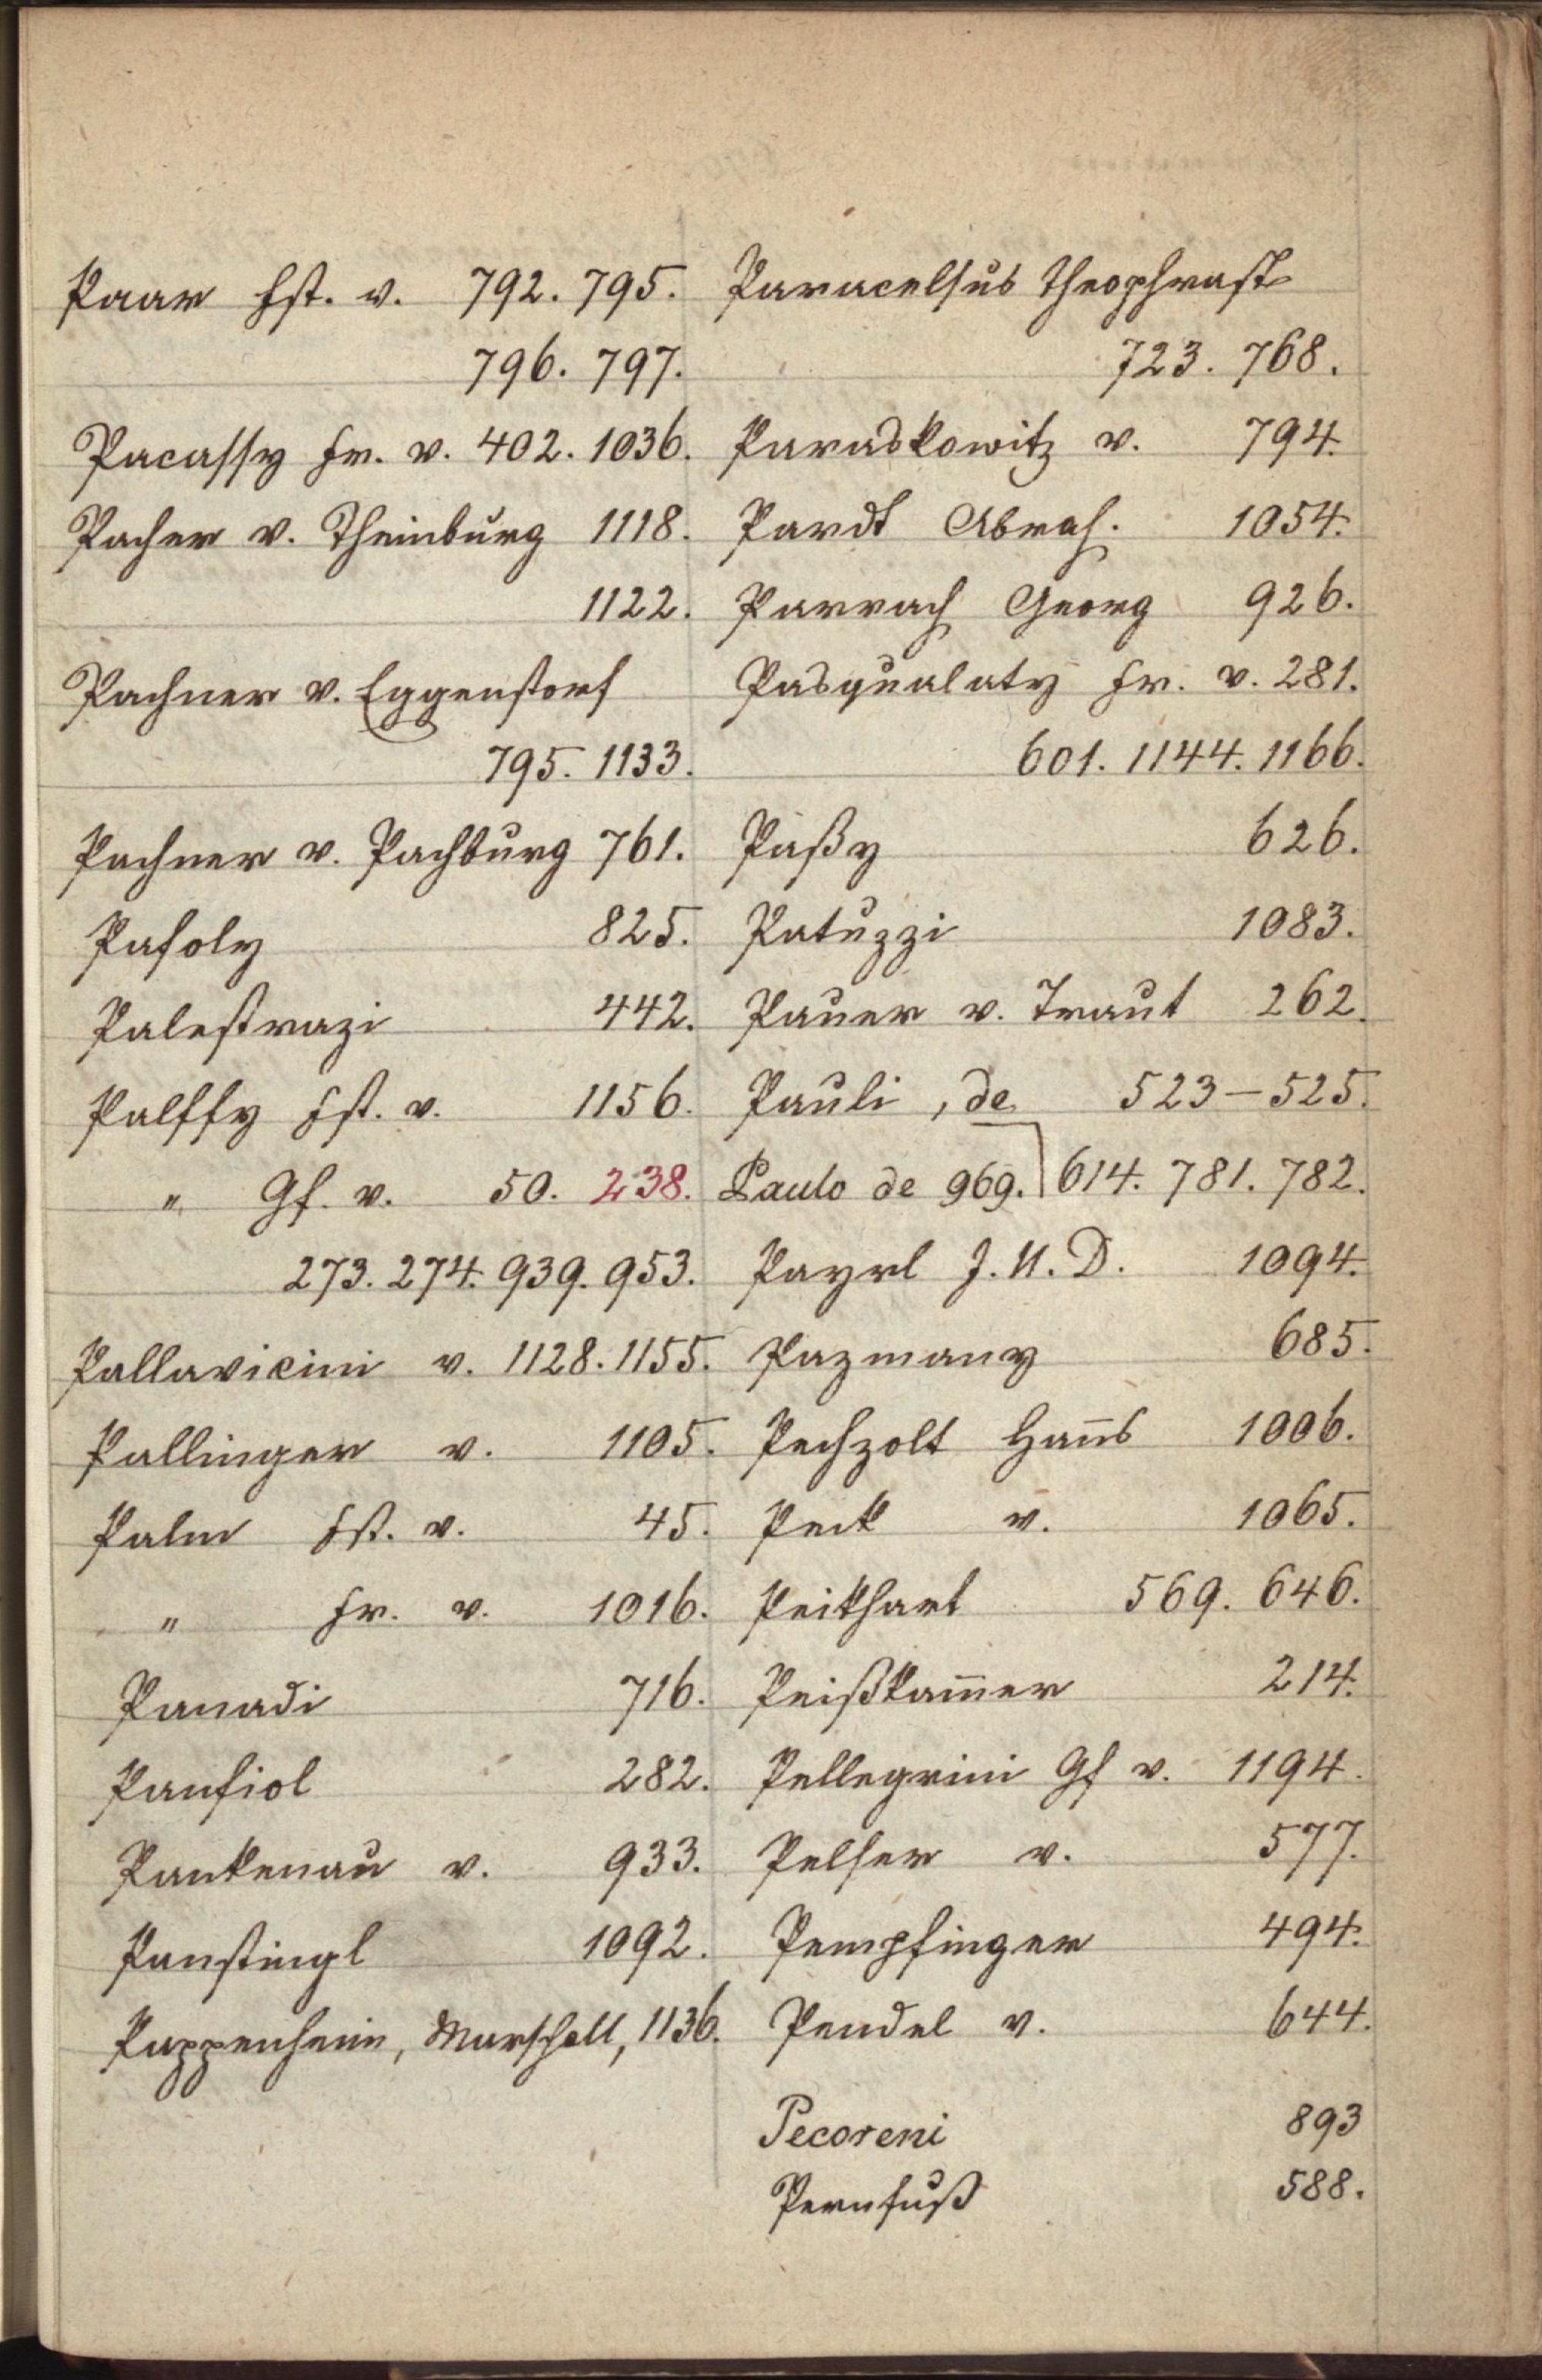 Paar Fst. v. 792. 795.
796. 797.
Pacassy Fr. v. 402. 1036.
Pacher v. Theinburg 1118.
1122.
Pachner v. Eggenstorf
795. 1133.
Pachner v. Pachburg 761.
Pafoly 825.
Palestrazi 442.
Palffy Fst. v. 1156.
" Gf. v. 50. 238.
273. 274. 939. 953.
Pallavicini v. 1128. 1155.
Pallinger v. 1105.
Palm Fst. v. 45.
" Fr. v. 1016.
Panadi 716.
Panfiol 282.
Pankenau v. 933.
Panstingl 1092.
Pappenheim, Marschall, 1136.
Paracelsus Theophrast
723. 768.
Paraskowitz v. 794.
Pardt Abrah. 1054.
Parrach Georg 926.
Pasqualaty Fr. v. 281.
601. 1144. 1166.
Paßy 626.
Patuzzi 1083.
Pauer v. Traut 262.
Pauli, de 523–525.
Paulo de 969. 614. 781. 782.
Payrl J. U. D. 1094.
Pazmany 685.
Pechzolt Hañs 1006.
Peck v. 1065.
Peikhart 569. 646.
Peißkam̄er 214.
Pellegrini Gf v. 1194.
Pelser v. 577.
Pempfinger 494.
Pendel v. 644.
Pecoreni 893
Pernfuß 588.